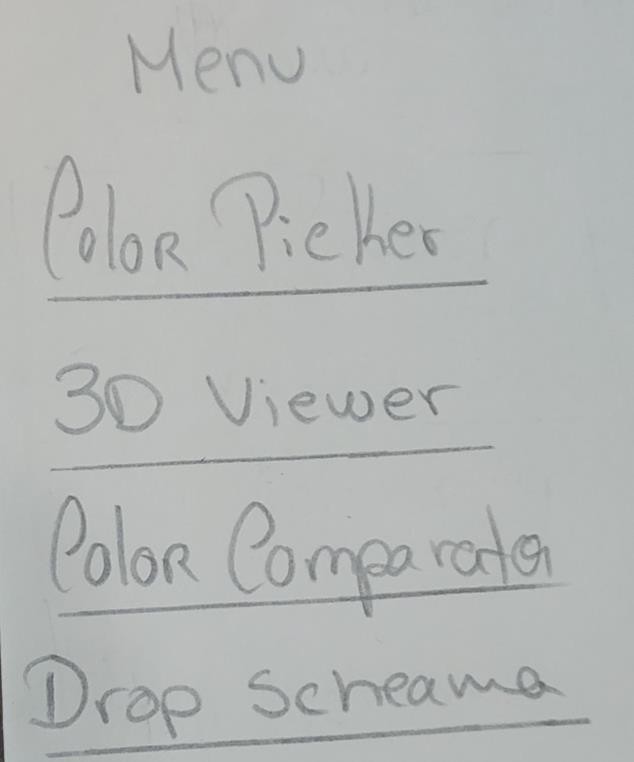 Menu
Color Picker
3D Viewer
Color Comparator
Drop Scheama